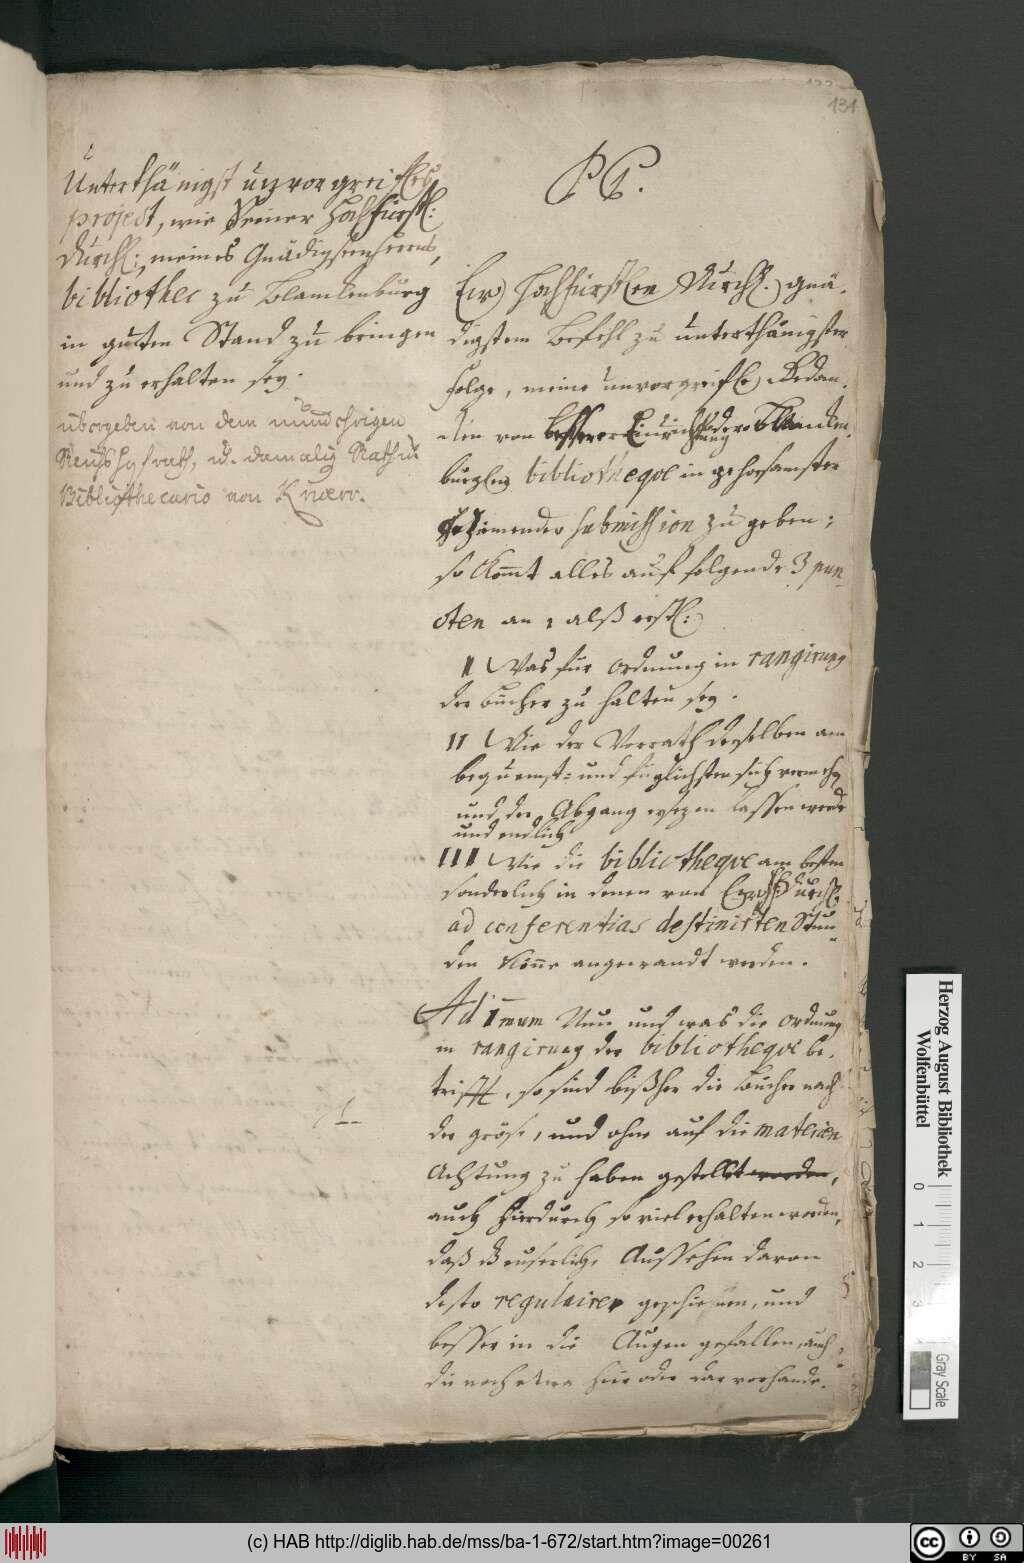 131
Unterthänigst unvorgreifl:es
project, wie Seiner Hochfürstl:
Durchl:, meines Gnädigsten Herrns,
bibliothec zu Blanckenburg
in guten Stand zu bringen
und zu erhalten sey.
übergeben von dem nunmehrigen
Reichshofrath, u. damalig Rath u.
Bibliothecario von Knorr.
P. P.
Ew. Hochfürstlen Durchl. gnä-
digstem Befehl zu unterthänigster
Folge, meine unvorgreifl. Gedan-
cken von besserer Einrichtung der Blancken-
burgl. bibliotheqve in gehorsamster
geziemender submission zu geben;
so kommt alles auf folgende 3 pun-
cten an, alß erstl:
I Was für Ordnung in rangirung
der bücher zu halten sey.
II Wie der Vorrath derselben am
bequemst- und füglichsten sich vermehren
und der Abgang ersezen lassen werde
und endlich
III Wie die bibliotheqve am besten
sonderlich in denen von Ew. Hochf. Durchl.
ad conferentias destinirten Stun-
den könne angewandt werden.
Ad 1mum Nun und was die Ordnung
in rangirung der bibliotheqve be-
trifft, so sind bißher die Bücher nach
der größe, und ohne auf die materien
Achtung zu haben gestellet worden,
auch hierdurch so viel erhalten worden,
daß das euserliche Aussehen davon
desto regulairer geschienen, und
besser in die Augen gefallen, auch
die noch etwa hier oder dar vorhande-
Herzog August Bibliothek
Wolfenbüttel
0 1 2 3
Gray Scale
(c) HAB http://diglib.hab.de/mss/ba-1-672/start.htm?image=00261
cc BY SA